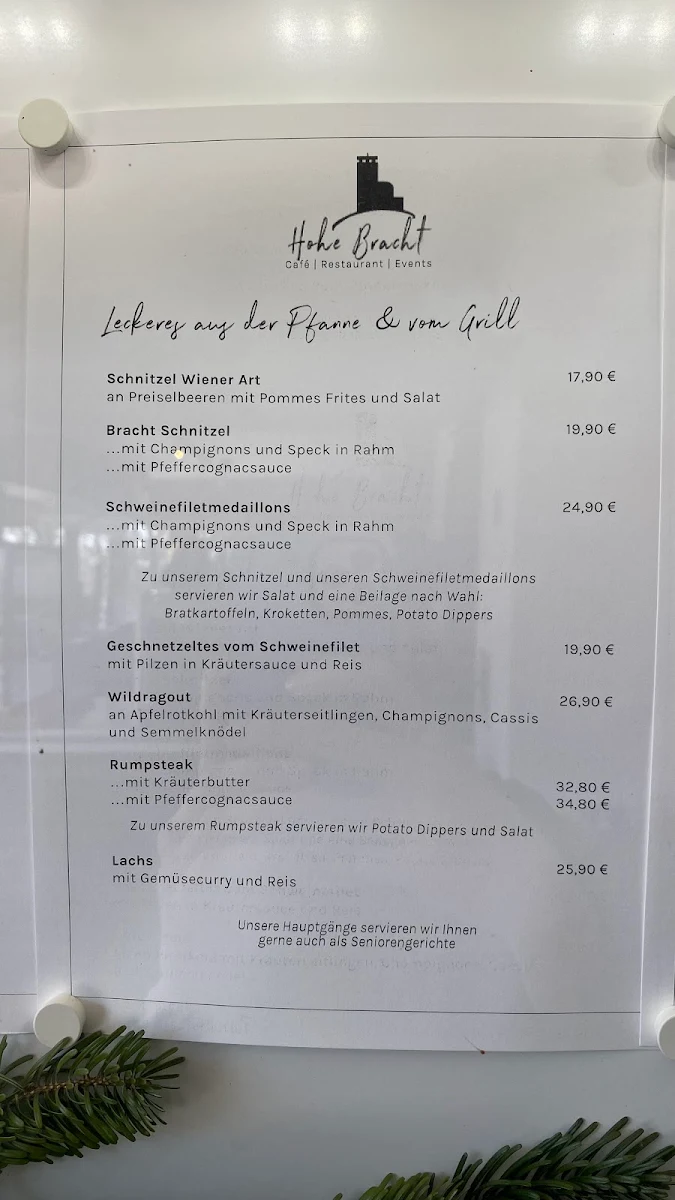 Hohe Bracht
Café | Restaurant | Events
Leckeres aus der Pfanne & vom Grill
Schnitzel Wiener Art 17,90 €
an Preiselbeeren mit Pommes Frites und Salat
Bracht Schnitzel 19,90 €
...mit Champignons und Speck in Rahm
...mit Pfeffercognacsauce
Schweinefiletmedaillons 24,90 €
...mit Champignons und Speck in Rahm
...mit Pfeffercognacsauce
Zu unserem Schnitzel und unseren Schweinefiletmedaillons
servieren wir Salat und eine Beilage nach Wahl:
Bratkartoffeln, Kroketten, Pommes, Potato Dippers
Geschnetzeltes vom Schweinefilet 19,90 €
mit Pilzen in Kräutersauce und Reis
Wildragout 26,90 €
an Apfelrotkohl mit Kräuterseitlingen, Champignons, Cassis
und Semmelknödel
Rumpsteak
...mit Kräuterbutter 32,80 €
...mit Pfeffercognacsauce 34,80 €
Zu unserem Rumpsteak servieren wir Potato Dippers und Salat
Lachs 25,90 €
mit Gemüsecurry und Reis
Unsere Hauptgänge servieren wir Ihnen
gerne auch als Seniorengerichte